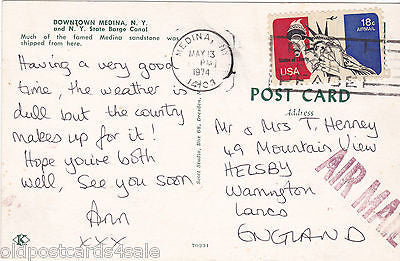 DOWNTOWN MEDINA, N. Y.
and N. Y. State Barge Canal
Much of the famed Medina sandstone was
shipped from here.
Having a very good
time, the weather is
dull but the country
makes up for it!
Hope you're both
well, See you soon
Ann
xxx
Scott Studio, Box 68, Dresden,
K
70231
MEDINA, NY
MAY 13
PM
1974
14103
18c
AIRMAIL
USA
POST CARD
Address
Mr & Mrs T. Henney
49 Mountain View
HELSBY
Warrington
Lancs
ENGLAND
AIR MAIL
oldpostcards4sale